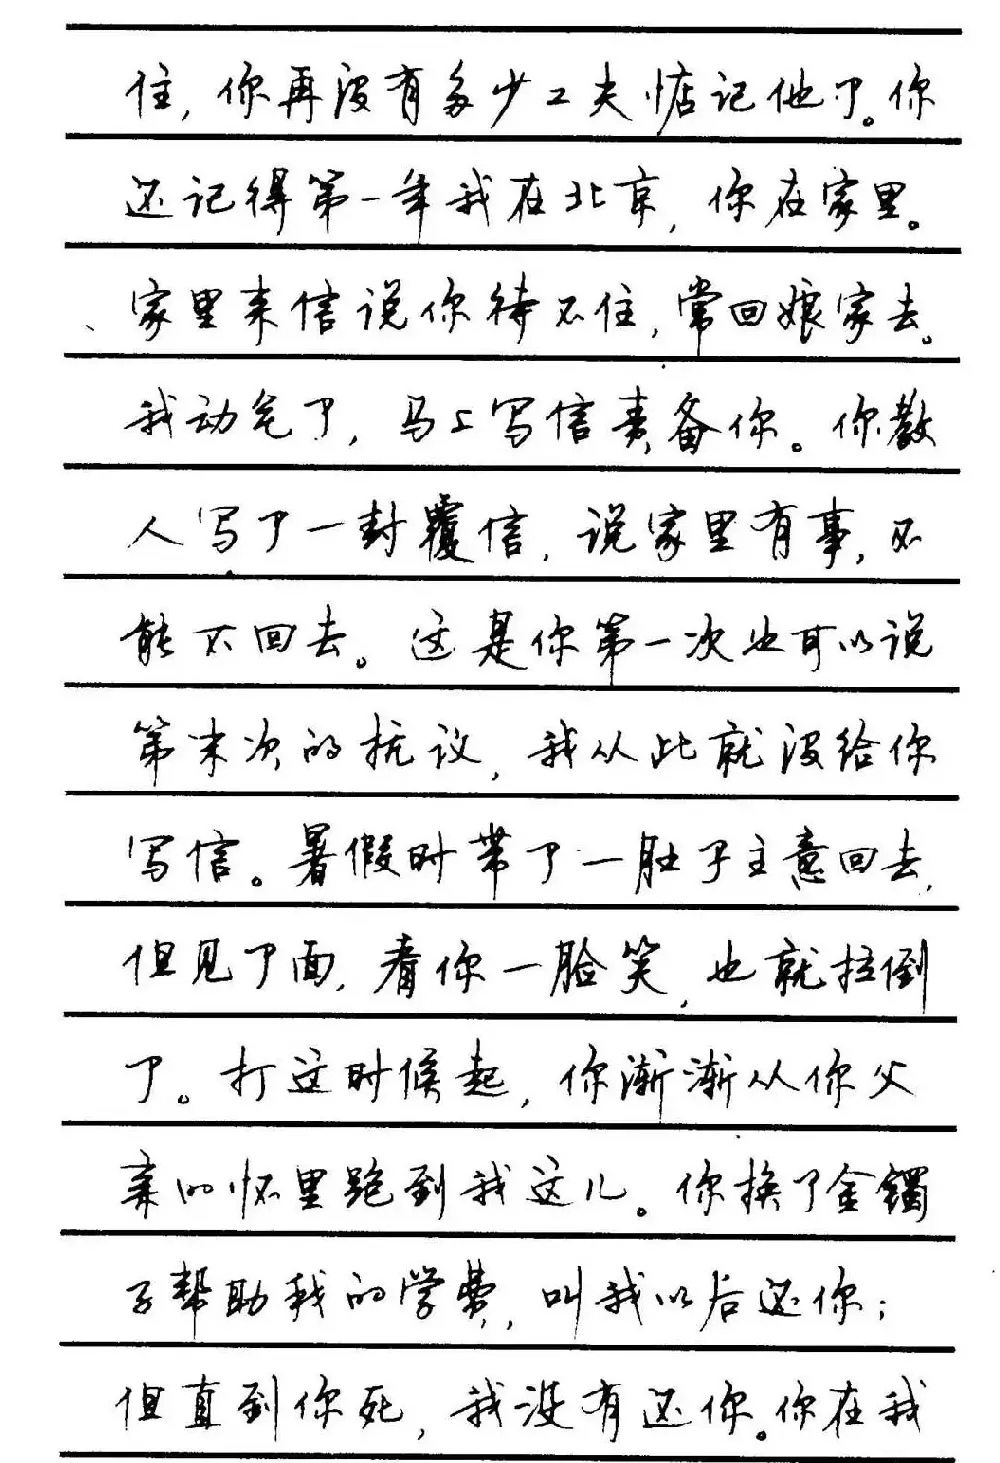 住,你再没有多少工夫惦记他了。你
还记得第一年我在北京,你在家里。
家里来信说你待不住,常回娘家去。
我动气了,马上写信责备你。你教
人写了一封覆信,说家里有事,不
能不回去。这是你第一次也可以说
第末次的抗议,我从此就没给你
写信。暑假时带了一肚子主意回去,
但见了面,看你一脸笑,也就拉倒
了。打这时候起,你渐渐从你父
亲的怀里跑到我这儿。你换了金镯
子帮助我的学费,叫我以后还你;
但直到你死,我没有还你。你在我